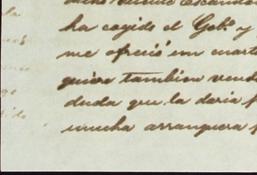 ha cogido el Gob.º y
me ofreció un cuarto
quiere tambien vend
duda que la daria p
mucha arranquera p